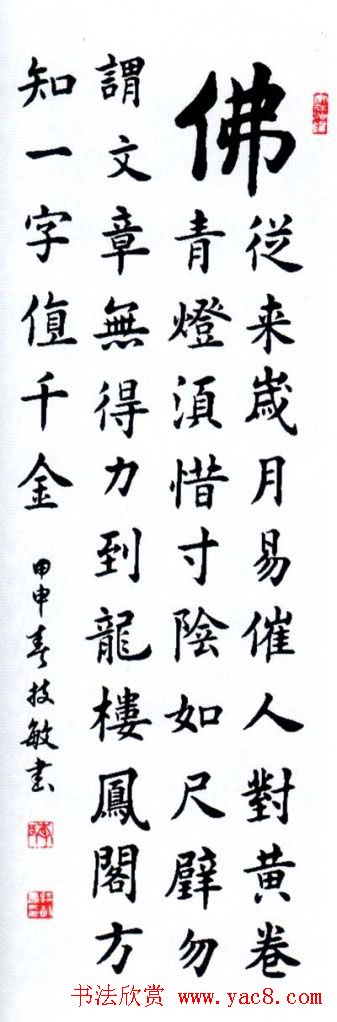 佛
從来嵗月易催人對黄卷
青燈湏惜寸陰如尺璧勿
謂文章無得力到龍樓鳳閣方
知一字值千金
甲申春技敏書
书法欣赏 www.yac8.com